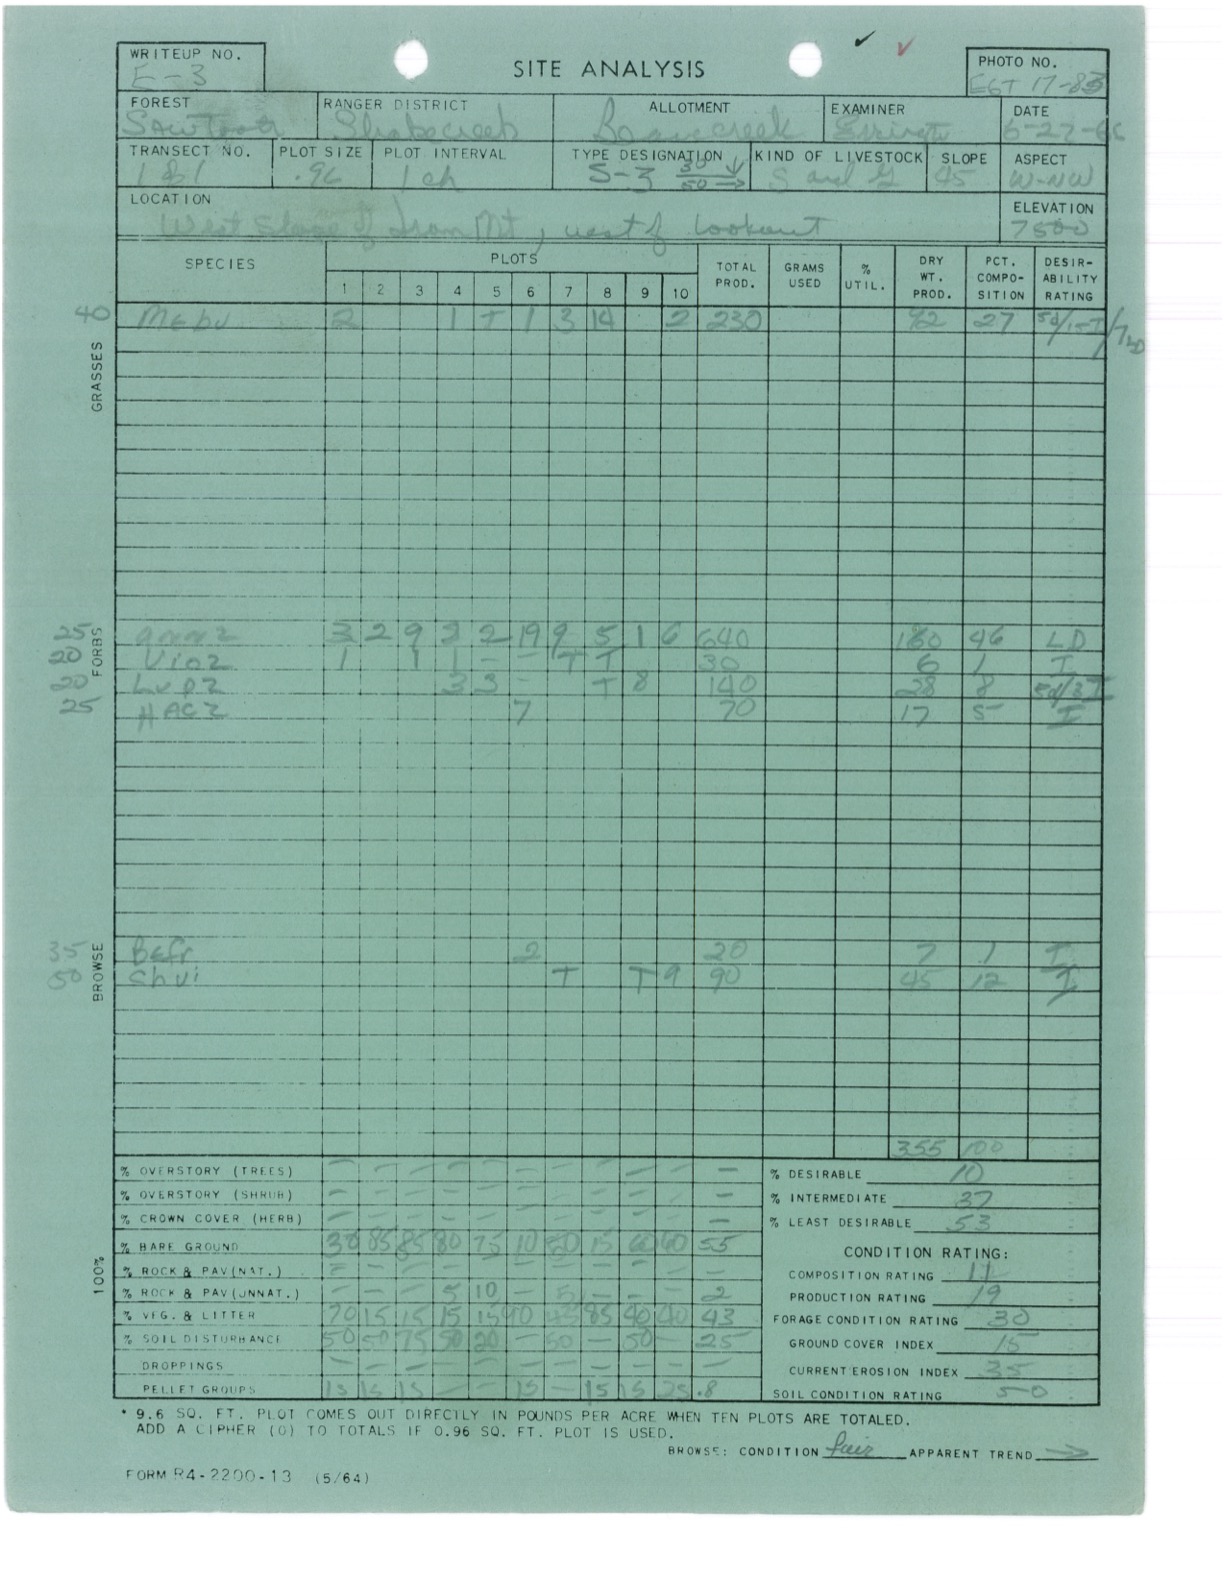 WRITEUP NO.
E-3
SITE ANALYSIS
PHOTO NO.
EGT 17-83
FOREST
Sawtooth
RANGER DISTRICT
Shakecreek
ALLOTMENT
EXAMINER
DATE
6-27-66
TRANSECT NO.
1 & 1
PLOT SIZE
.96
PLOT INTERVAL
1 ch
TYPE DESIGNATION
S-3 30/50
KIND OF LIVESTOCK
S and G
SLOPE
45
ASPECT
W-NW
LOCATION
West Slope of Iron Mt, west of lookout
ELEVATION
7500
SPECIES PLOTS TOTAL PROD. GRAMS USED % UTIL. DRY WT. PROD. PCT. COMPOSITION DESIRABILITY RATING
1 2 3 4 5 6 7 8 9 10
GRASSES
40 Mebu 2 1 T 1 3 14 2 230 92 27
FORBS
25 3 2 9 2 2 19 9 5 1 6 640 160 46 LD
20 Vio2 1 1 1 - - T T 30 6 1 I
20 Lup2 3 3 - T 8 140 28 8 5d/3I
25 HAC2 7 70 17 5 I
BROWSE
35 Befr 2 20 7 1 I
50 Chvi T T 9 90 45 12 I
355 100
100%
% OVERSTORY (TREES) - - - - - - - - - - -
% OVERSTORY (SHRUB) - - - - - - - - - - -
% CROWN COVER (HERB) - - - - - - - - - - -
% BARE GROUND 30 85 85 80 75 10 50 15 60 60 55
% ROCK & PAV (NAT.) - - - - - - - - - - -
% ROCK & PAV (UNNAT.) - - - 5 10 - 5 - - - 2
% VEG. & LITTER 70 15 15 15 15 90 45 85 40 40 43
% SOIL DISTURBANCE 50 50 75 50 20 - 50 - 50 - 25
DROPPINGS - - - - - - - - - - -
PELLET GROUPS 15 15 15 - - 15 - 15 15 25 .8
% DESIRABLE 10
% INTERMEDIATE 37
% LEAST DESIRABLE 53
CONDITION RATING:
COMPOSITION RATING 11
PRODUCTION RATING 19
FORAGE CONDITION RATING 30
GROUND COVER INDEX 15
CURRENT EROSION INDEX 35
SOIL CONDITION RATING 50
* 9.6 SQ. FT. PLOT COMES OUT DIRECTLY IN POUNDS PER ACRE WHEN TEN PLOTS ARE TOTALED.
ADD A CIPHER (0) TO TOTALS IF 0.96 SQ. FT. PLOT IS USED.
BROWSE: CONDITION fair APPARENT TREND →
FORM R4-2200-13 (5/64)